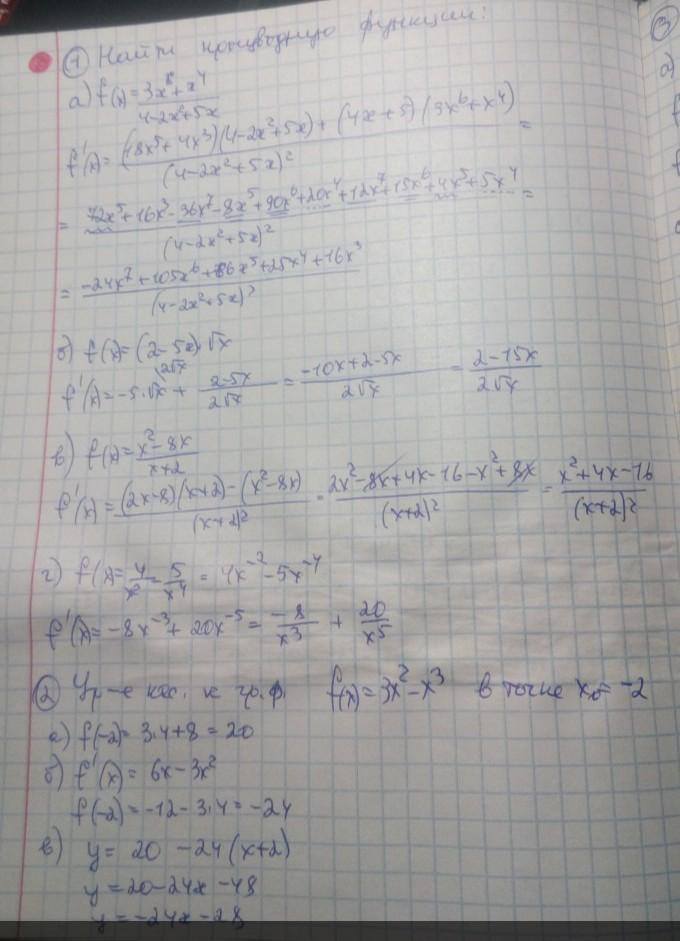 ① Найти производную функции:
а) f(x) = (3x⁶+x⁴)/(4-2x²+5x)
f'(x) = ((18x⁵+4x³)(4-2x²+5x)+(4x+5)(3x⁶+x⁴))/(4-2x²+5x)² =
= (72x⁵+16x³-36x⁷-8x⁵+90x⁶+20x⁴+12x⁷+15x⁶+4x⁵+5x⁴)/(4-2x²+5x)² =
= (-24x⁷+105x⁶+86x⁵+25x⁴+16x³)/(4-2x²+5x)²
б) f(x) = (2-5x)·√x
f'(x) = -5·√x + (2-5x)/(2√x) = (-10x+2-5x)/(2√x) = (2-15x)/(2√x)
в) f(x) = (x²-8x)/(x+2)
f'(x) = ((2x-8)(x+2)-(x²-8x))/(x+2)² = (2x²-8x+4x-16-x²+8x)/(x+2)² = (x²+4x-16)/(x+2)²
г) f(x) = 4/x² - 5/x⁴ = 4x⁻²-5x⁻⁴
f'(x) = -8x⁻³+20x⁻⁵ = -8/x³ + 20/x⁵
② Ур-е кас. к гр.ф. f(x) = 3x²-x³ в точке x₀ = -2
а) f(-2) = 3·4+8 = 20
б) f'(x) = 6x-3x²
f(-2) = -12-3·4 = -24
в) y = 20-24(x+2)
y = 20-24x-48
y = -24x-28
③
а)
f
f